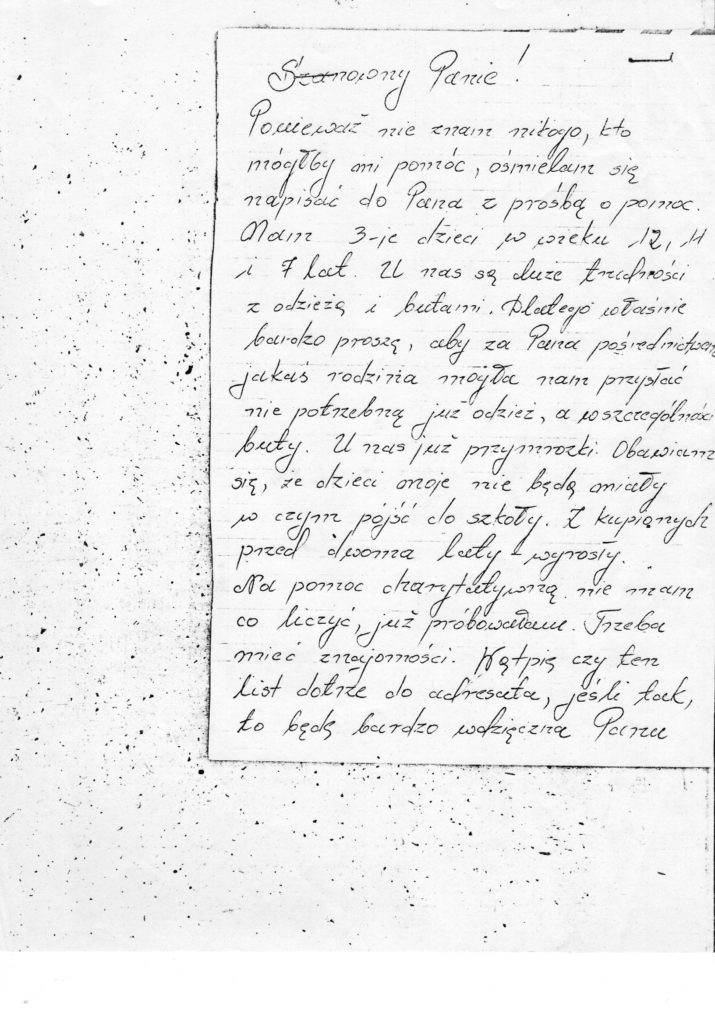 Szanowny Panie!
Ponieważ nie znam nikogo, kto
mógłby mi pomóc, ośmielam się
napisać do Pana z prośbą o pomoc.
Mam 3-je dzieci w wieku 12, 11
i 7 lat. U nas są duże trudności
z odzieżą i butami. Dlatego właśnie
bardzo proszę, aby za Pana pośrednictwem
jakaś rodzina mogła nam przysłać
nie potrzebną już odzież, a w szczególności
buty. U nas już przymrozki. Obawiam
się, że dzieci moje nie będą miały
w czym pójść do szkoły. Z kupionych
przed dwoma laty - wyrosły.
Na pomoc charytatywną nie mam
co liczyć, już próbowałam. Trzeba
mieć znajomości. Wątpię czy ten
list dotrze do adresata, jeśli tak,
to będę bardzo wdzięczna Panu